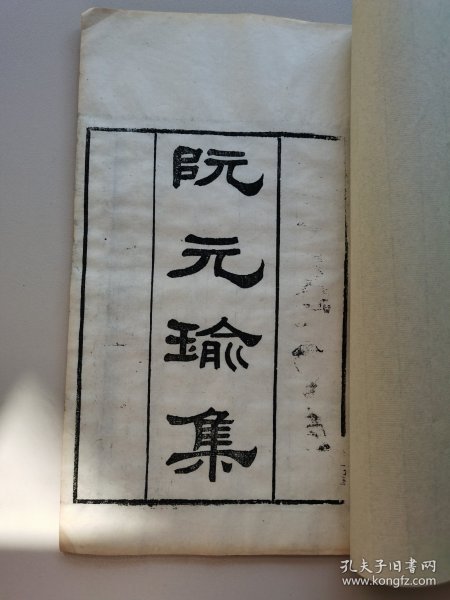 阮元瑜集
孔夫子旧书网
www.kongfz.com